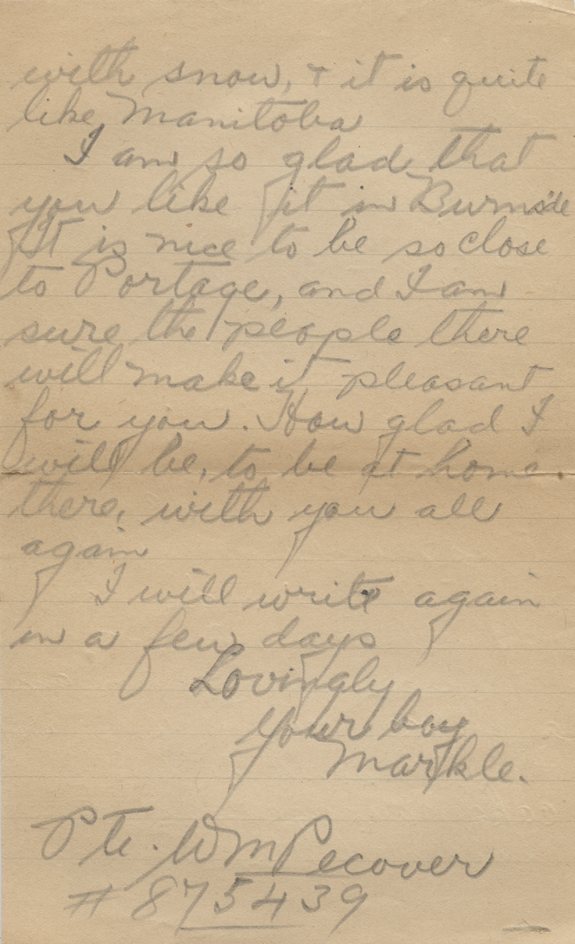 with snow, & it is quite
like, Manitoba
I am so glad that
you like it in Burnside
It is nice to be so close
to Portage, and I am
sure the people there
will make it pleasant
for you. How glad I
will be, to be at home.
there, with you all
again
I will write again
in a few days
Lovingly
Your boy
Markle.
Pte. Wm Pecover
# 875439